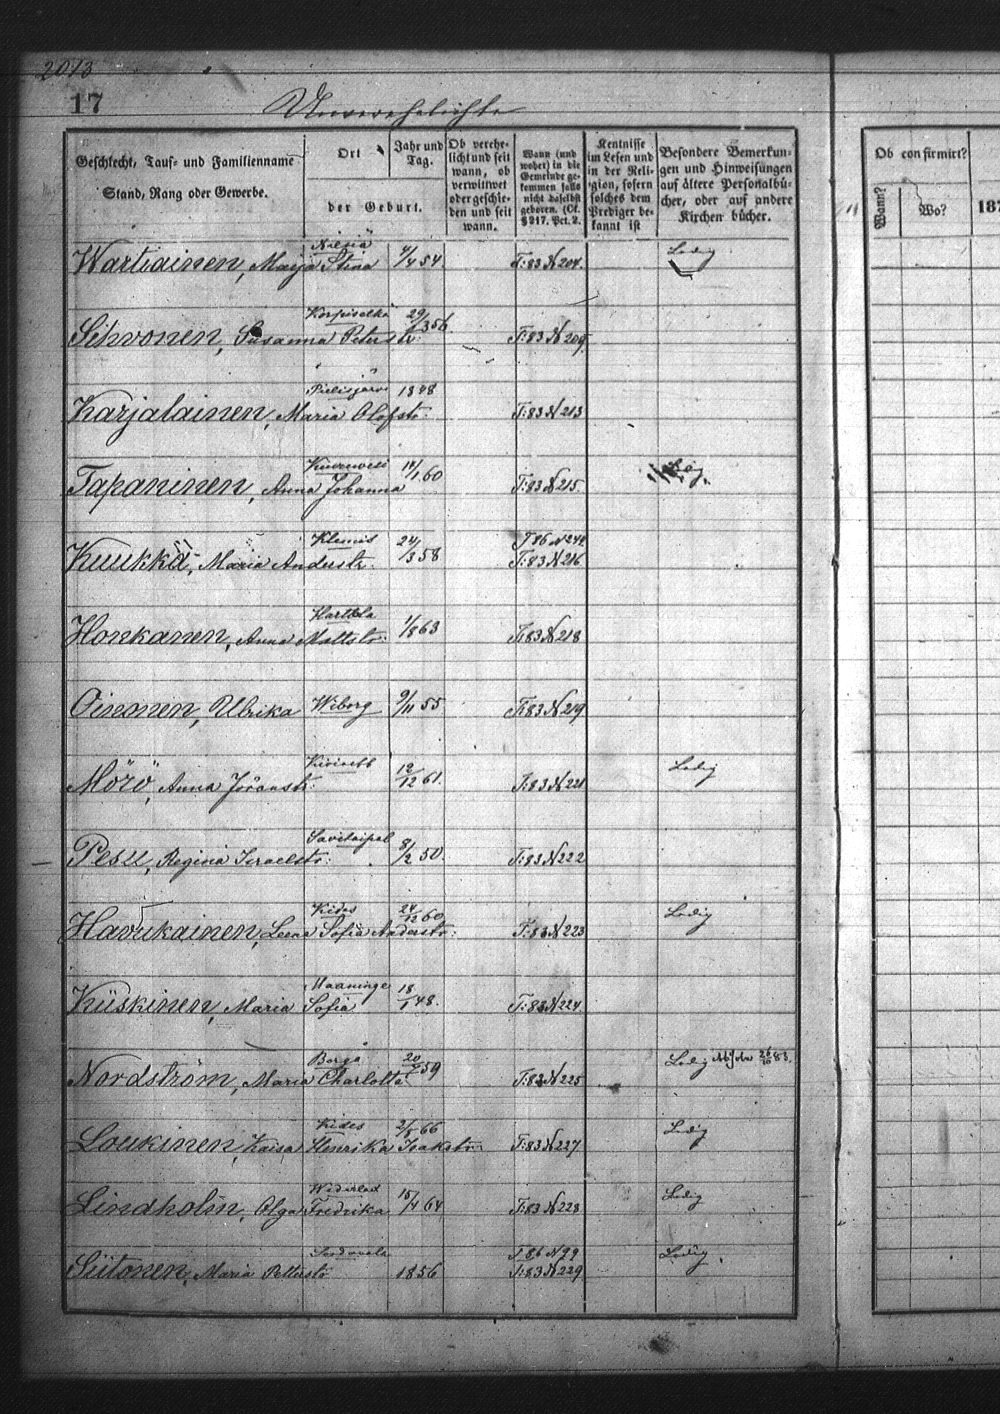 2013
17
Unverehelichte
Geschlecht, Tauf- und Familienname
Stand, Rang oder Gewerbe.
Ort
der Geburt.
Jahr und Tag.
Ob verehe-
licht und seit
wann, ob
verwitwet
oder geschie-
den und seit
wann.
Wann (und
woher) in die
Gemeinde ge-
kommen falls
nicht daselbst
geboren. (Cf.
§ 217. Pct. 2.
Kentnisse
im Lesen und
in der Reli-
gion, sofern
solches dem
Prediger be-
kannt ist
Besondere Bemerkun-
gen und Hinweisungen
auf ältere Personalbü-
cher, oder auf andere
Kirchen bücher.
Ob confirmirt?
Wann?
Wo?
187
Nilsiä
Wartiainen, Maija Stina 4/4 54. T:83 N 204. Ledig
Korpiselkä
Sihvonen, Susanna Peterstr. 29/3 56. T:83 N 209.
Pielisjärvi 1848
Karjalainen, Maria Olofstr. T:83 N 213
Tapaninen, Anna Johanna 14/1 60 T:83 N 215.
Klemis T 86 N 242
Kuukka, Maria Anderstr. 24/3 58 T:83 N 216
Harttola
Honkanen, Anna Mattstr. 1/8 63 T:83 N 218
Oinonen, Ulrika Wiborg 9/11 55 T:83 N 219
Kivinebb Ledig
Mörö, Anna Jöranstr: 12/12 61 T:83 N 221
Savitaipal
Pesu, Regina Israelstr: 8/2 50. T:83 N 222
Kides Ledig
Havukainen, Leena Sofia Anderstr: 24/12 60 T:83 N 223
Maaninga
Kiiskinen, Maria Sofia 18/1 48. T:83 N 224.
Borgå Ledig 26/10 83
Nordström, Maria Charlotta 20/7 59 T:83 N 225
Kides Ledig
Loukinen, Kaisa Henrika Isakstr: 2/8 66 T:83 N 227
Wederlax Ledig
Lindholm, Olga Fredrika 15/4 64 T:83 N 228
Sordavala T 86 N 99 Ledig
Siitonen, Maria Petterstr 1856 T:83 N 229